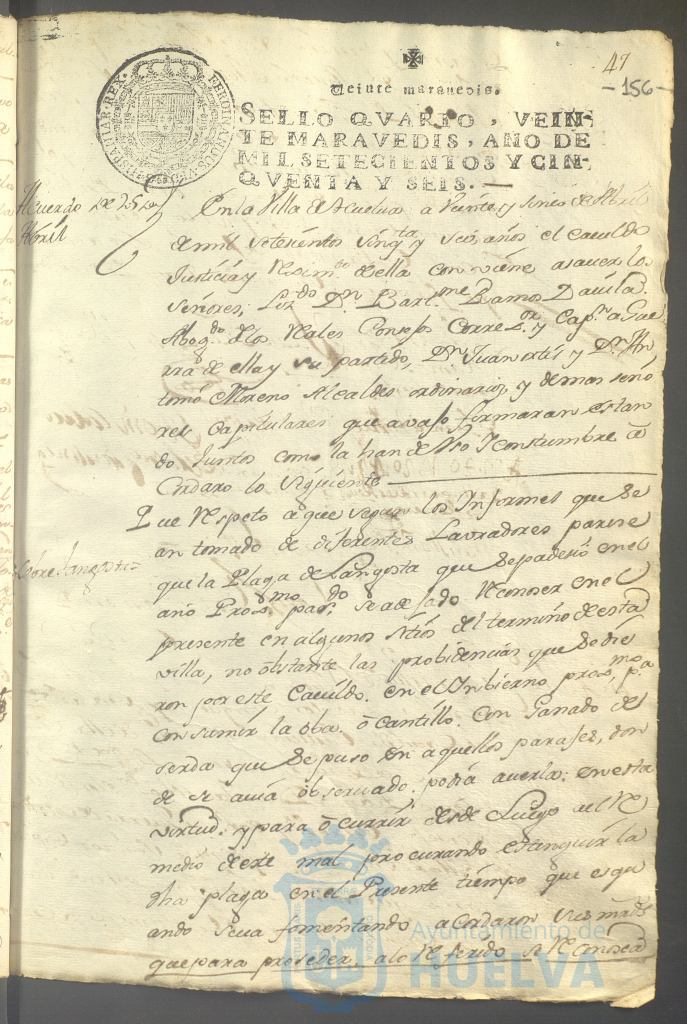 47
-156-
Veinte maravedis.
SELLO QVARTO, VEIN-
TE MARAVEDIS, AÑO DE
MIL SETECIENTOS Y CIN-
QVENTA Y SEIS.
FERDINANDUS VI D G HISPANIAR REX
Acuerdo de 25 de
Abril
En la Villa de Huelva a Veinte y sinco de Abril
de mil setesientos sinqta y seis años el Cavildo
Justicia y Reximto de ella conviene a saver los
señores, Lizdo Dn Bartme Ramos Davila
Abogdo de los Reales Consejos Correxor y Capn a Gue
rra de ella y su partido, Dn Juan ortis y Dn An
tonio Moreno Alcaldes ordinarios, y demas seño
res Capitulares que avajo firmaran estan
do Juntos como la han de Uso y constumbre a
Cordaro lo siguiente
Sobre Langosta
Que Respeto a que segun los Informes que se
an tomado de diferentes Lavradores parese
que la Plaga de Langosta que se padesio en el
año Proxmo pasdo se a dejado Reconoser en el
presente en algunos sitios del termino de esta
villa, no obstante las probidencias que se die
ron por este Cavildo. en el Inbierno proxmo pa
Consumir la oba o Cantillo. Con Ganado de
serda que se puso en aquellos parajes, don
de se avia observado. podia averla: en esta
virtud. y para ocurrir desde Luego al Re
medio de este mal procurando estinguir la
dha plaga en el Presente tiempo que es qu
ando se va fomentando acordaron sus mrds
que para proseder a lo Referido se Reconosca
Ayuntamiento de
HUELVA